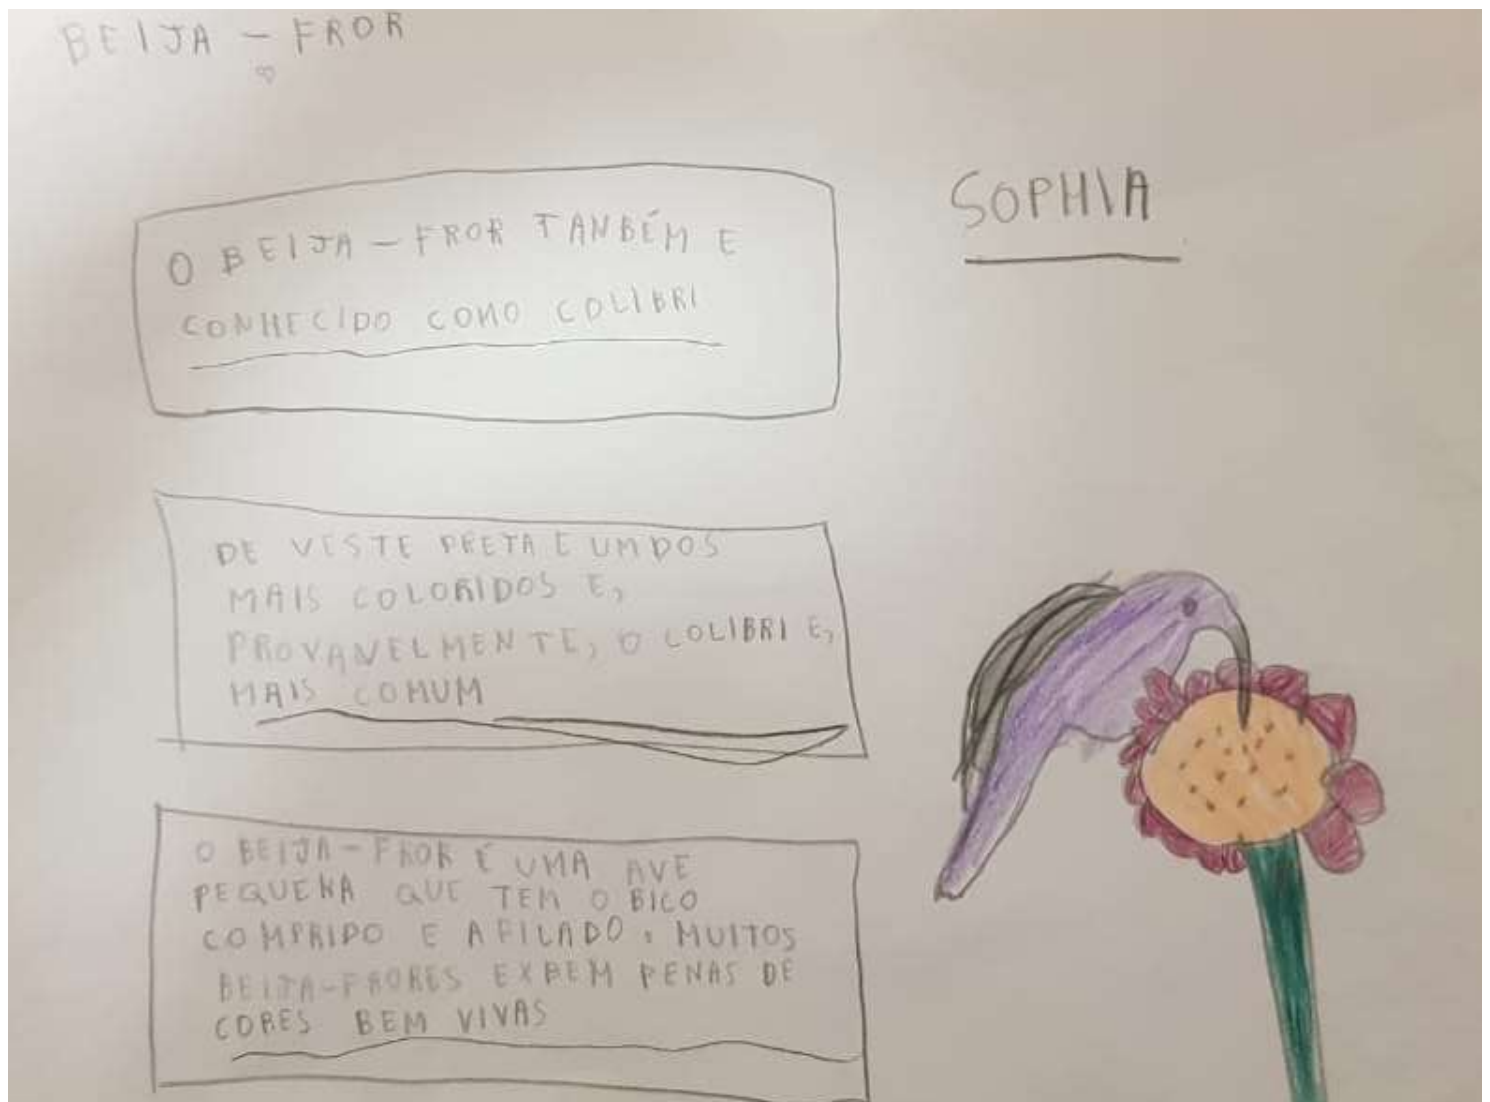 BEIJA - FROR
SOPHIA
O BEIJA - FROR TANBÉM E
CONHECIDO COMO COLIBRI
DE VESTE PRETA E UM DOS
MAIS COLORIDOS E,
PROVANELMENTE, O COLIBRI E,
MAIS COMUM
O BEIJA-FROR É UMA AVE
PEQUENA QUE TEM O BICO
COMPRIDO E AFILADO. MUITOS
BEIJA-FRORES EXBEM PENAS DE
CORES BEM VIVAS